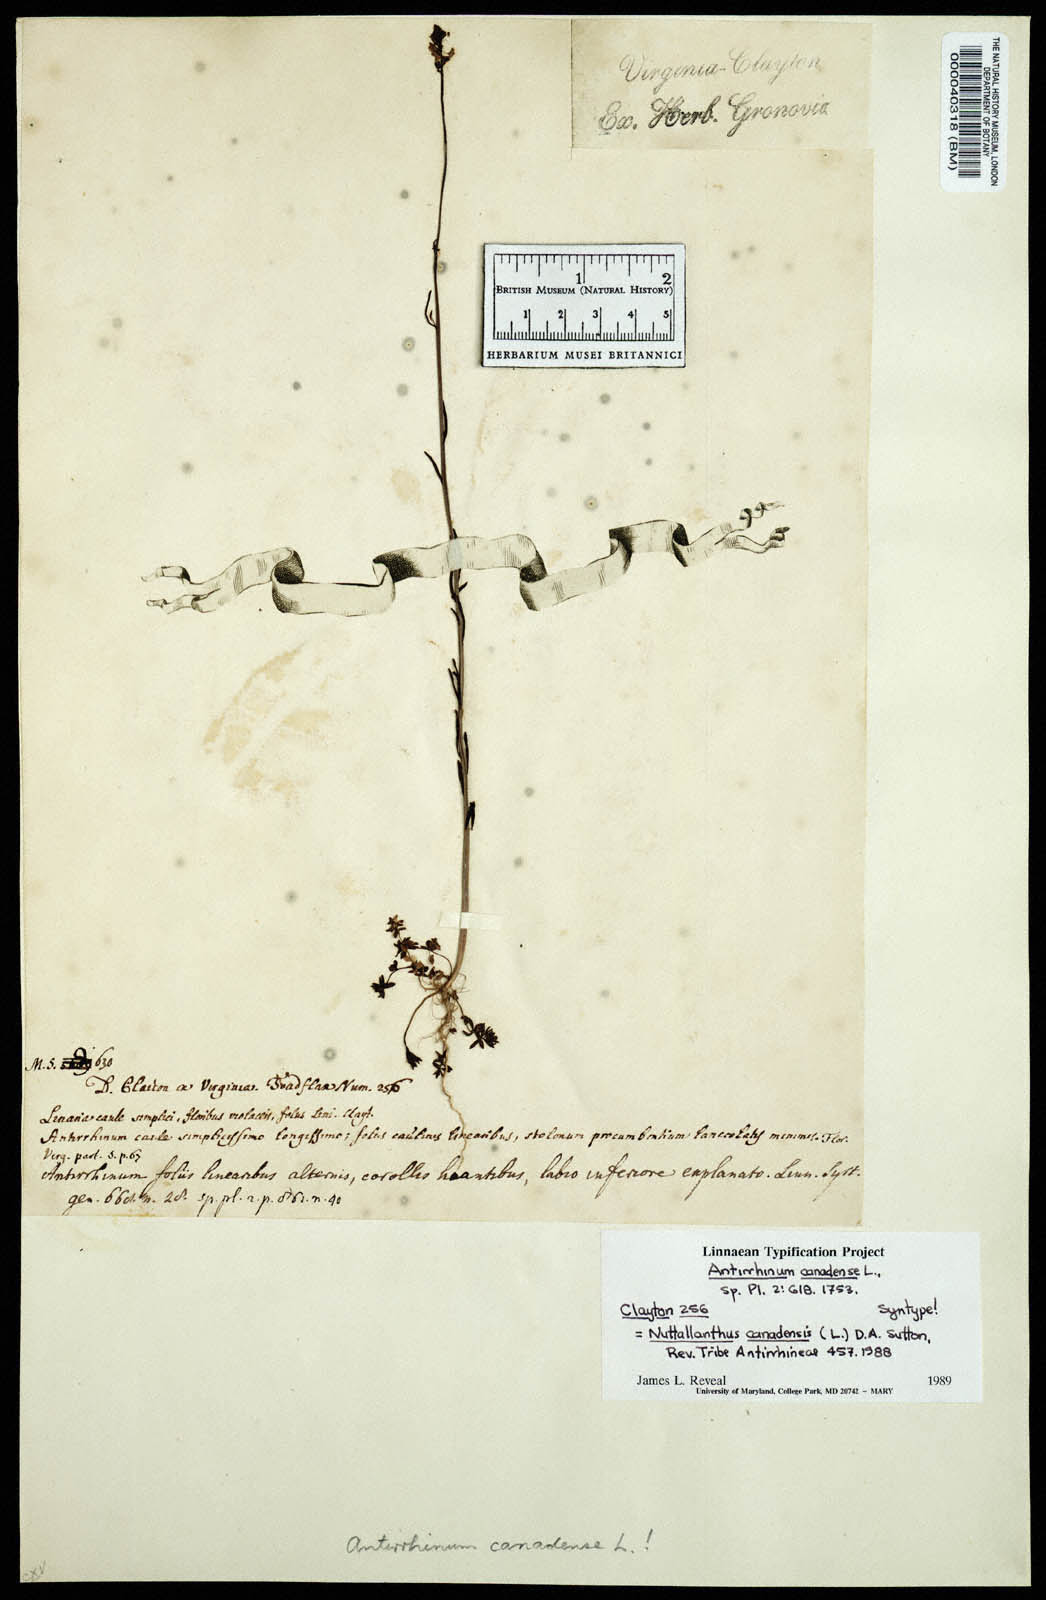 Virginia-Clayton
Ex. Herb. Gronovia
THE NATURAL HISTORY MUSEUM, LONDON
DEPARTMENT OF BOTANY
000040318 (BM)
1 2
BRITISH MUSEUM (NATURAL HISTORY)
1 2 3 4 5
HERBARIUM MUSEI BRITANNICI
M. S. 630
D. Claiton ex Virginia. Num. 256
Linaria caule simplici, floribus violaceis, foliis Lini. Clayt.
Antirrhinum caule simplicissimo longissimo; foliis caulinis linearibus, stolonum procumbentium lanceolatis minimis. Flor.
Virg. part. 5. p. 67
Antirrhinum foliis linearibus alternis, corollis hiantibus, labio inferiore explanato. Linn. Syst.
gen. 668. n. 28. sp. pl. 2. p. 862. n. 40
Linnaean Typification Project
Antirrhinum canadense L.,
Sp. Pl. 2: 618. 1753.
Clayton 256 Syntype!
= Nuttallanthus canadensis (L.) D.A. Sutton,
Rev. Tribe Antirrhineae 457. 1988
James L. Reveal 1989
University of Maryland, College Park, MD 20742 – MARY
Antirrhinum canadense L. !
CXV